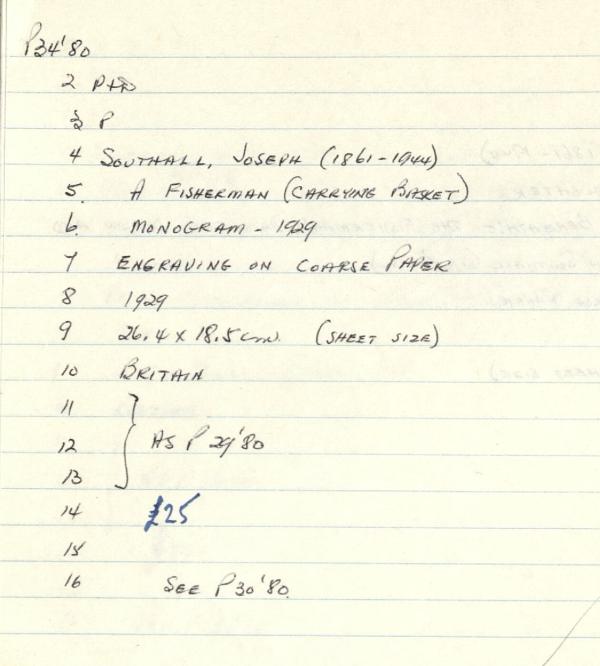 P34'80
2 P+D
3 P
4 SOUTHALL, JOSEPH (1861-1944)
5. A FISHERMAN (CARRYING BASKET)
6. MONOGRAM - 1929
7 ENGRAVING ON COARSE PAPER
8 1929
9 26.4 x 18.5 cm. (SHEET SIZE)
10 BRITAIN
11
12 AS P 29'80
13
14 £25
15
16 SEE P30'80.